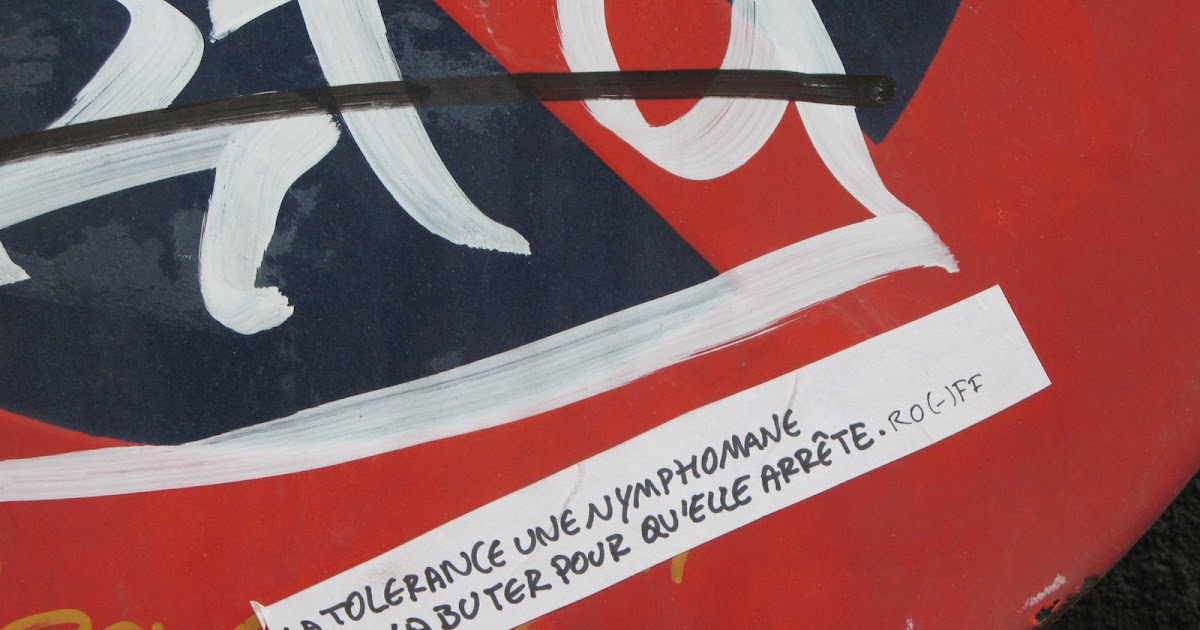 LA TOLERANCE UNE NYMPHOMANE
BUTER POUR QU'ELLE ARRÊTE. RO(-)FF